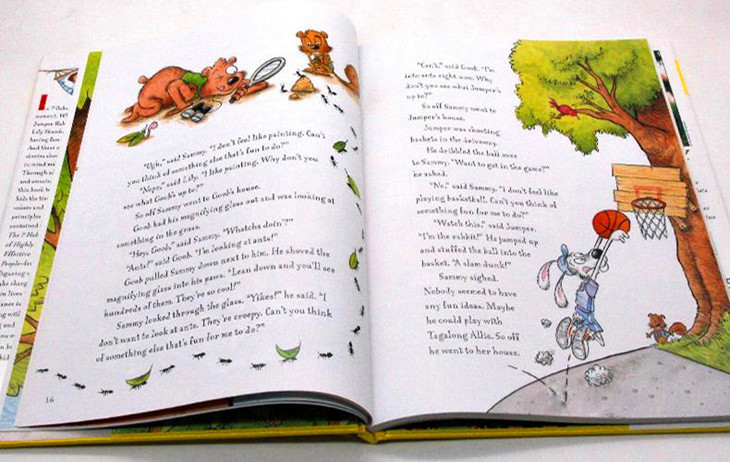 "Ugh," said Sammy. "I don't feel like painting. Can't
you think of something else that's fun to do?"
"Nope," said Lily. "I like painting. Why don't you
see what Goob's up to?"
So off Sammy went to Goob's house.
Goob had his magnifying glass out and was looking at
something in the grass.
"Hey, Goob," said Sammy. "Whatcha doin'?"
"Ants!" said Goob. "I'm looking at ants!"
Goob pulled Sammy down next to him. He shoved the
magnifying glass into his paws. "Lean down and you'll see
hundreds of them. They're so cool!"
Sammy looked through the glass. "Yikes!" he said. "I
don't want to look at ants. They're creepy. Can't you think
of something else that's fun for me to do?"
16
"Can't," said Goob. "I'm
into ants right now. Why
don't you see what Jumper's
up to?"
So off Sammy went to
Jumper's house.
Jumper was shooting
baskets in the driveway.
He dribbled the ball over
to Sammy. "Want to get in the game?"
he asked.
"No," said Sammy. "I don't feel like
playing basketball. Can't you think of
something fun for me to do?"
"Watch this," said Jumper.
"I'm the rabbit!" He jumped up
and stuffed the ball into the
basket. "A slam dunk!"
Sammy sighed.
Nobody seemed to have
any fun ideas. Maybe
he could play with
Tagalong Allie. So off
he went to her house.
this book to
kids the tim
values and
principles
contained
The 7 Hab
of Highly
Effective
People